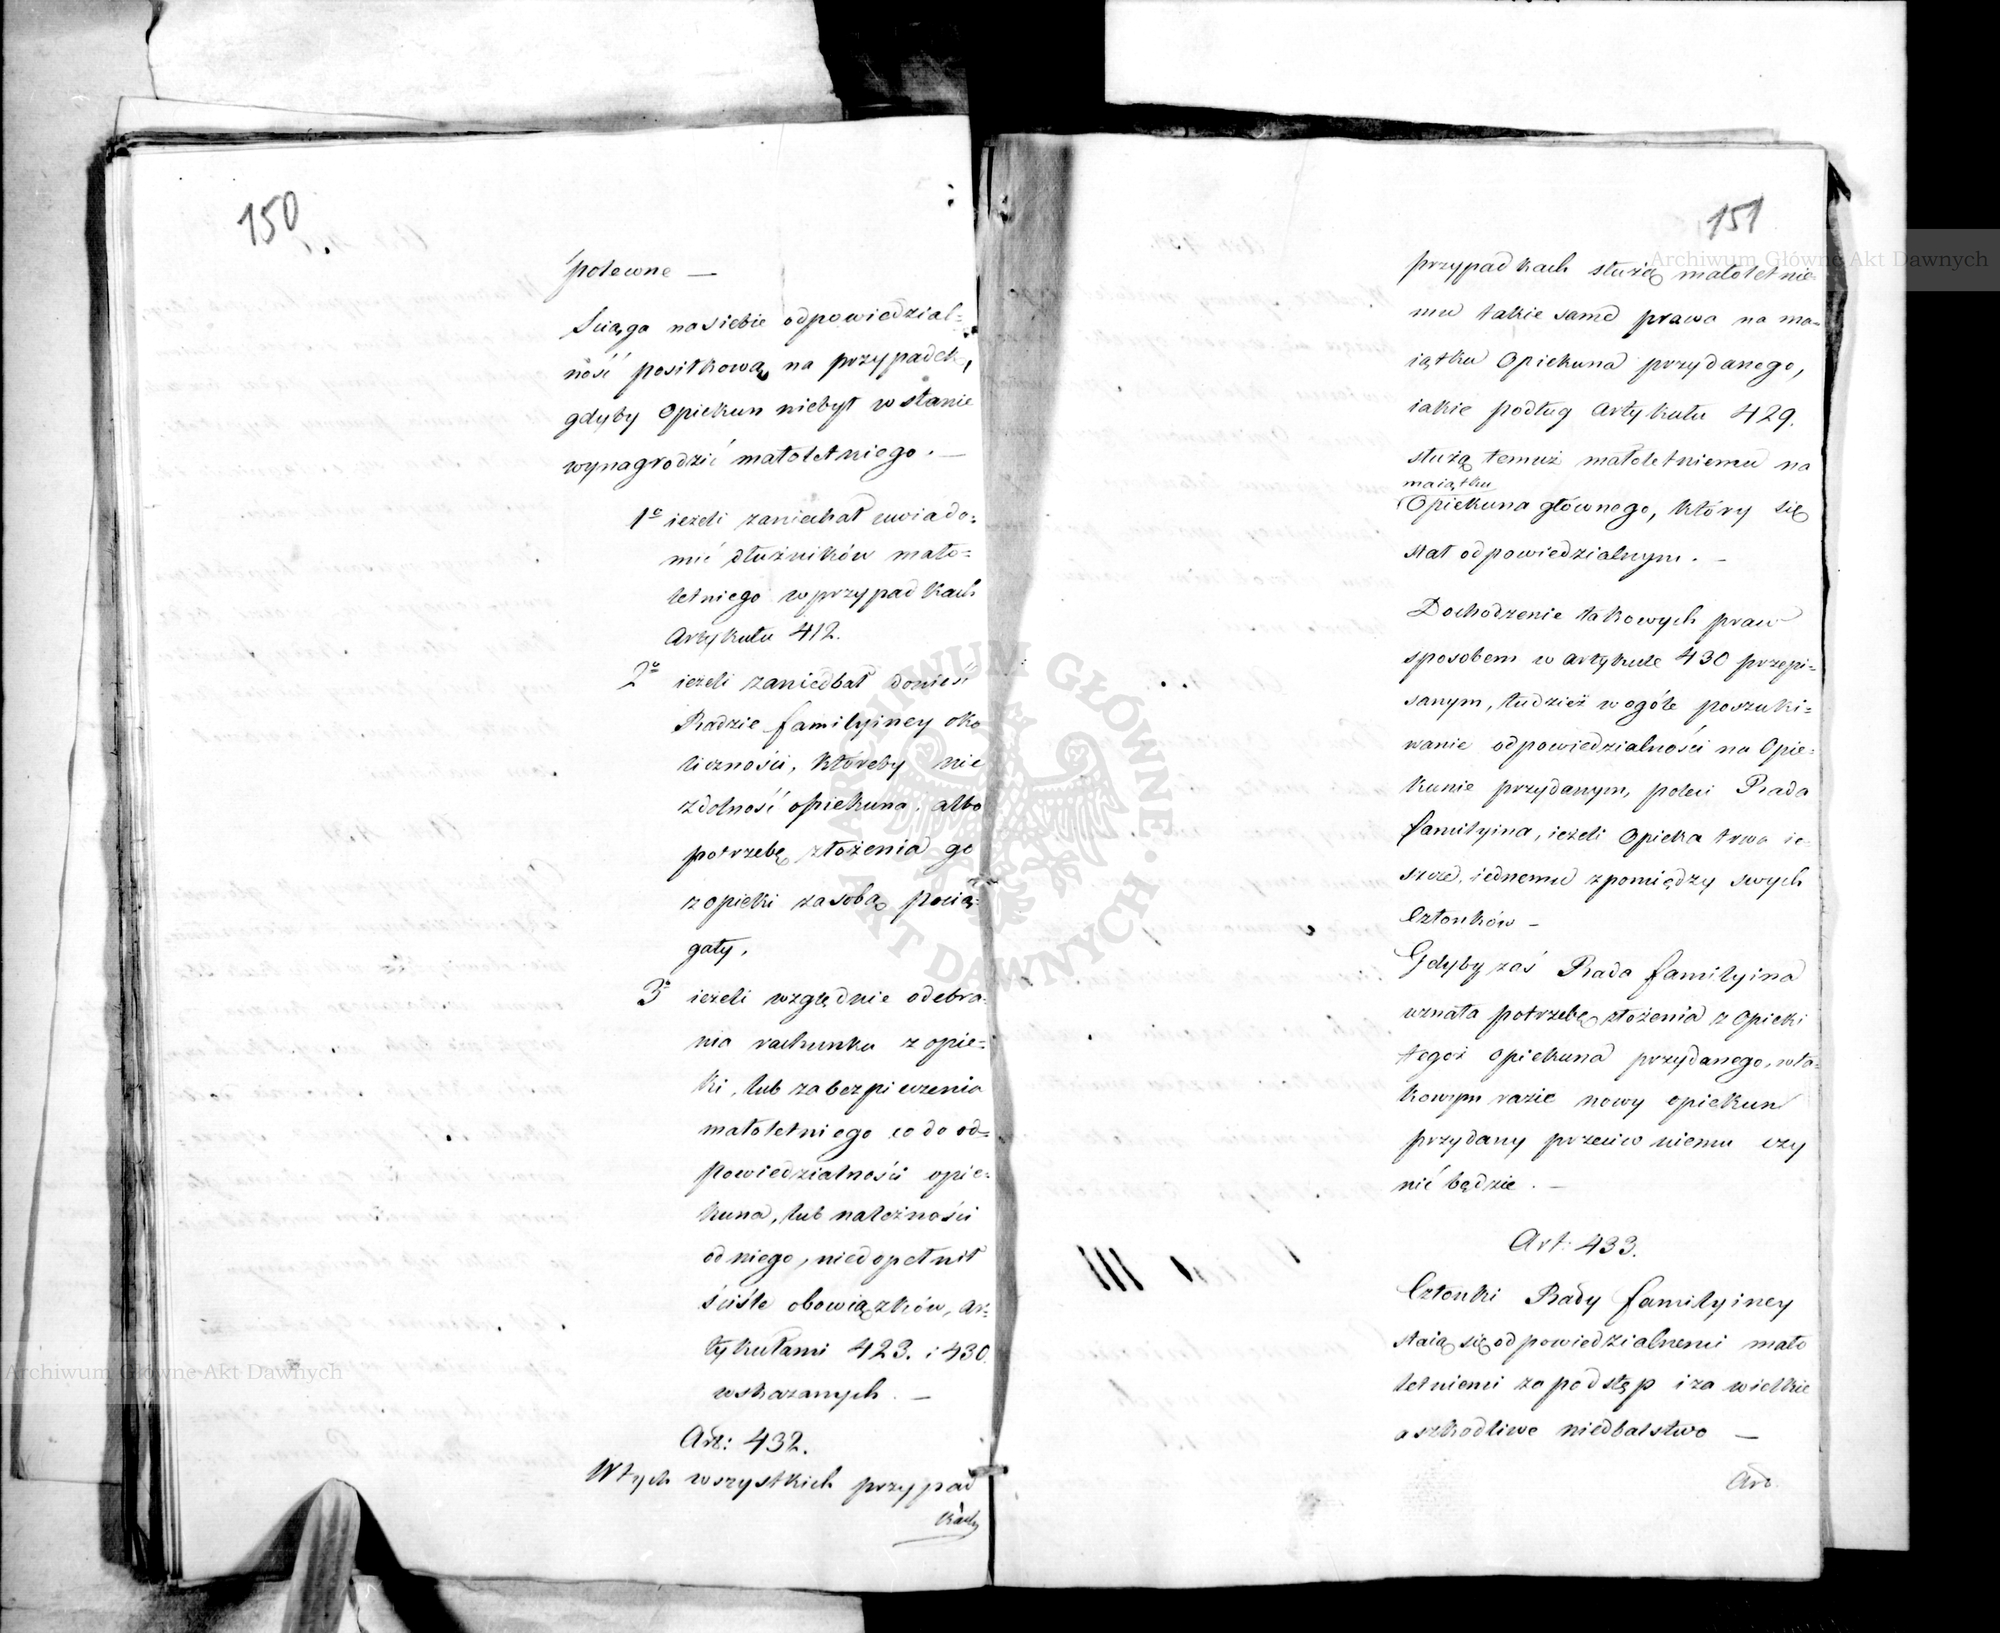 150
polewne —
Sciąga nasiebie odpowiedzial=
ność positkową na przypadek,
gdyby Opiekun niebył wstanie
wynagrodzić małoletniego. —
1º ieżeli zaniechał uwiado=
mić dłużników mało=
letniego wprzypadkach
Artykułu 412.
2º ieżeli zaniedbał donieść
Radzie familyiney oko
liczności, któreby nie
zdolność opiekuna, albo
potrzebę złożenia go
z opieki zasobą pocią=
gały,
3º ieżeli względnie odebra=
nia rachunku z opie=
ki, lub zabezpieczenia
małoletniego co do od=
powiedzialności opie=
kuna, lub należności
od niego, niedopełnił
ściśle obowiązków, ar=
tykułami 423. i 430.
wskazanych. —
Art: 432.
Wtych wszystkich przypad
kach
151
przypadkach służą małoletnie=
mu takie same prawa na ma=
iątku Opiekuna przydanego,
iakie podług Artykułu 429.
służą temuż małoletniemu na
maiątku
Opiekuna głównego, który się
stał odpowiedzialnym. —
Dochodzenie takowych praw
sposobem w artykule 430 przepi=
sanym, tudzież wogóle poszuki=
wanie odpowiedzialności na Opie=
kunie przydanym, poleci Rada
familyina, ieżeli Opieka trwa ie=
szcze, iednemu zpomiędzy swych
Członków —
Gdyby zaś Rada familyina
uznała potrzebę złożenia z Opieki
tegoż opiekuna przydanego, wta=
kowym razie nowy opiekun
przydany przeciw niemu czy
nić będzie. —
Art: 433.
Członki Rady familyiney
staią się odpowiedzialnemi mało
letniemi za podstęp i za wielkie
a szkodliwe niedbalstwo —
Art.
Archiwum Główne Akt Dawnych
Archiwum Główne Akt Dawnych
ARCHIWUM GŁÓWNE AKT DAWNYCH